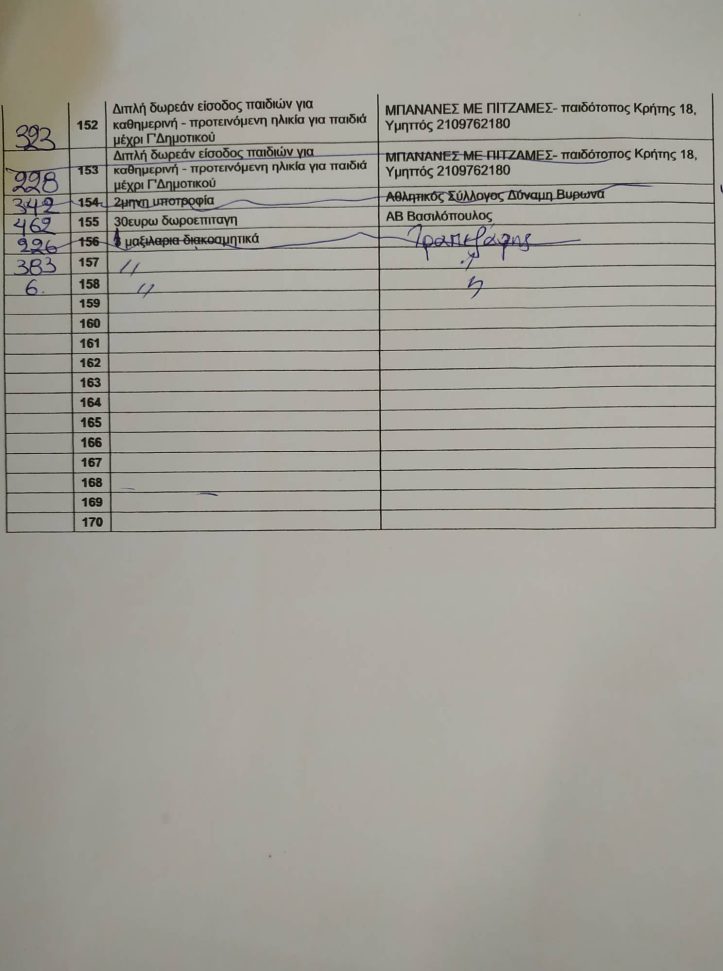 393 152 Διπλή δωρεάν είσοδος παιδιών για καθημερινή - προτεινόμενη ηλικία για παιδιά μέχρι Γ'Δημοτικού ΜΠΑΝΑΝΕΣ ΜΕ ΠΙΤΖΑΜΕΣ- παιδότοπος Κρήτης 18, Υμηττός 2109762180
228 153 Διπλή δωρεάν είσοδος παιδιών για καθημερινή - προτεινόμενη ηλικία για παιδιά μέχρι Γ'Δημοτικού ΜΠΑΝΑΝΕΣ ΜΕ ΠΙΤΖΑΜΕΣ- παιδότοπος Κρήτης 18, Υμηττός 2109762180
342 154 2μηνη υποτροφία Αθλητικός Σύλλογος Δύναμη Βυρωνα
462 155 30ευρω δωροεπιταγη ΑΒ Βασιλόπουλος
226 156 μαξιλαρια διακοσμητικά
383 157 〃 〃
6 158 〃 〃
159
160
161
162
163
164
165
166
167
168
169
170